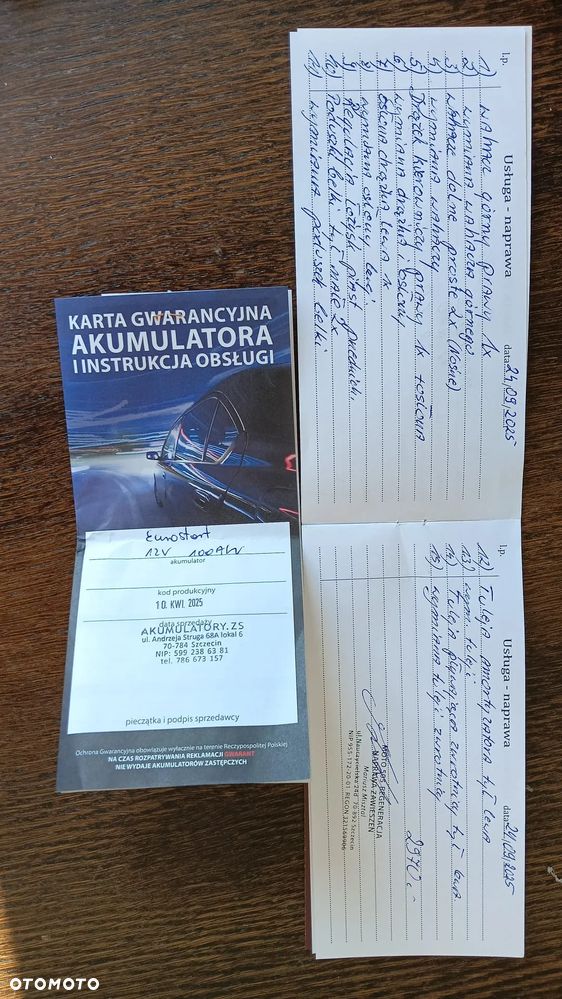 KARTA GWARANCYJNA
AKUMULATORA
I INSTRUKCJA OBSŁUGI
Eurostart
12V 100Ah
akumulator
kod produkcyjny
10. KWI. 2025
data sprzedaży
AKUMULATORY.ZS
ul. Andrzeja Struga 68A lokal 6
70-784 Szczecin
NIP: 599 238 63 81
tel. 786 673 157
pieczątka i podpis sprzedawcy
Ochrona Gwarancyjna obowiązuje wyłącznie na terenie Rzeczypospolitej Polskiej
NA CZAS ROZPATRYWANIA REKLAMACJI GWARANT
NIE WYDAJE AKUMULATORÓW ZASTĘPCZYCH
l.p. Usługa - naprawa data 24,09,2025
1) wahacz górny prawy 1x
2) wymiana wahacza górnego
3) wahacz dolne proste 2x (Nośne)
4) wymiana wahaczy
5) Drążek kierowniczy prawy 1x + osłona
6) wymiana drążka i osłony
7) osłona drążka lewa 1x
8) wymiana osłony lewej
9) Regulacja łożysk piast przednich
10) Poduszki belki tył małe 2x
11) wymiana poduszek belki
l.p. Usługa - naprawa data 24,09,2025
12) Tuleja amortyzatora tył lewa
13) wym. tulei
14) Tuleja pływająca zwrotnicy tył lewa
15) wymiana tulei zwrotnicy
2970,-
MOTO SOS REGENERACJA
NAPRAWA ZAWIESZEŃ
Mariusz Misztal
ul. Nauczycielska 24d 70-892 Szczecin
NIP 955-172-20-01 REGON 321569906
OTOMOTO